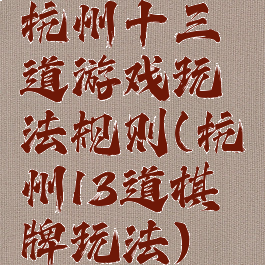 杭州十三
道游戏玩
法规则(杭
州13道棋
牌玩法)